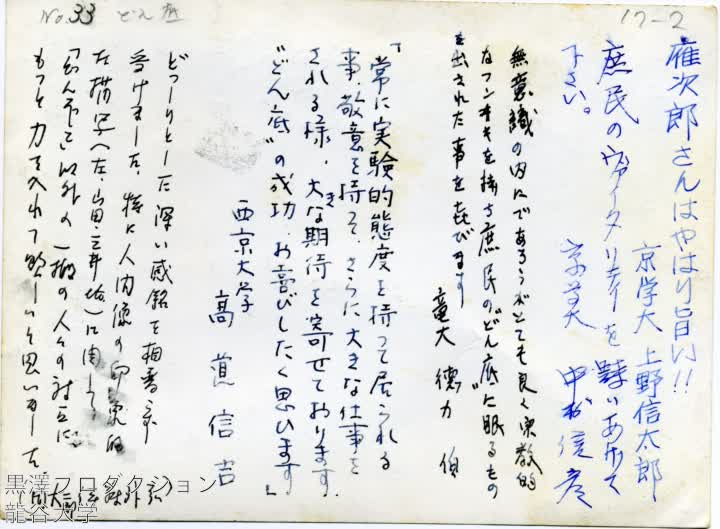 No.33 どん底
17-2
雁次郎さんはやはり旨い!!
京学大 上野信太郎
庶民のヴァイタリティを謳いあげて
下さい。
無意識の内にであろうがとても良く宗教的
なフンイキを持ち庶民の“どん底”に眠るもの
を出された事を喜びます
竜大 徳力
「常に実験的態度を持って居られる
事、敬意を持って、さらに大きな仕事を
される様、大きな期待を寄せております。
“どん底”の成功、お喜びしたく思ひます」
西京大学
高 信吉
どっしりとした深い感銘を
受けました。特に人間像の印象的
な描写
以外の一般の人々の
もっと力を入れて欲しいと思いました。
黒澤プロダクション
龍谷大学